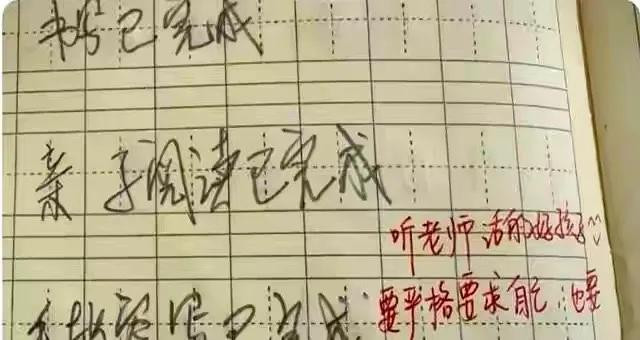 书写已完成
亲子阅读已完成
听老师话的好孩子
写已完成
要严格要求自己 也要